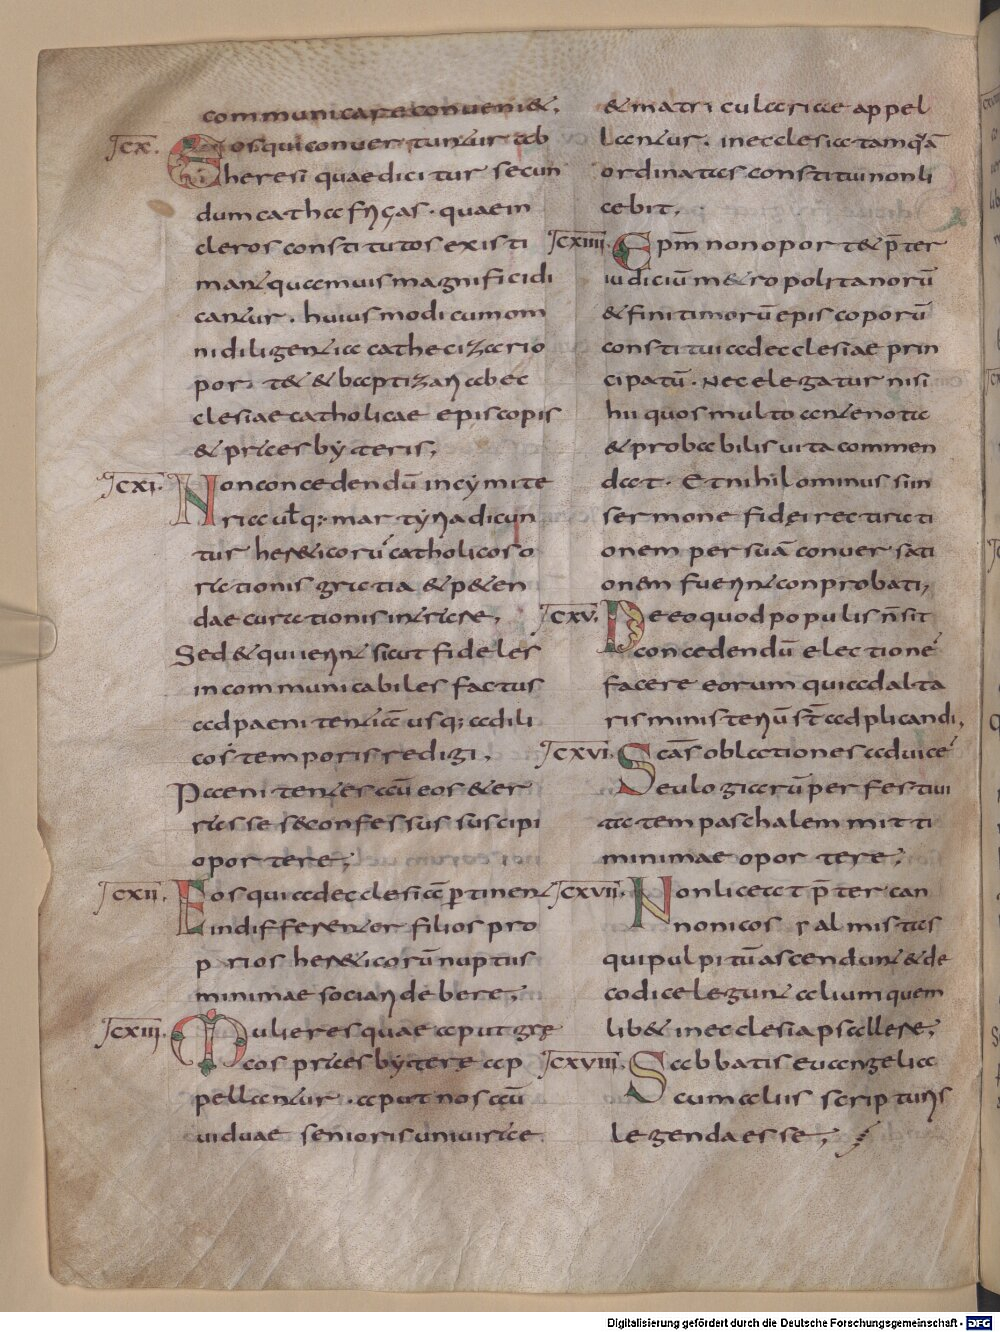 communicare conveni&.
ICX. Eos qui convertuntur ab
heresi quae dicitur secun
dum catha frygas. quae in
cleros constitutos existi
mant quamvis magnifici di
cantur. huius modi cum om
ni diligentia cathecizari o
port& & baptizari ab ec
clesiae catholicae episcopis
& presbyteris;
ICXI. Non concedendū in cymite
ria vƚ q: martyria dicun
tur hereticorū catholicos o
rationis gratia & p&en
dae curationis intrare;
Sed & qui ierint sicut fideles
incommunicabiles factus
ad paenitentiā usq; ad ali
cos temporis redigi.
Paenitentes aū eos & er
rasse se confessus suscipi
oportere;
ICXII. Eos qui ad ecclesiā ꝑtinent
indifferenter filios pro
prios hereticorū nuptiis
minimae sociari debere;
ICXIII. Mulieres quae aput grę
cos presbyterę ap
pellantur. aput nos aū
viduae senioris univirae
& matriculariae appel
lantur. in ecclesia tamqā
ordinatas constitui non li
cebit.
ICXIIII. Epm̄ non oport& p̄ter
iudiciū m&ropolitanorū
& finitimorū episcoporū
constitui ad ecclesiae prin
cipatū. Nec elegatur nisi
hii quos multo ante nota
& probabilis vita commen
dat. Et nihilominus si in
sermone fidęi rectirati
onem per suā conversati
onem fuerint conprobati;
ICXV. De eo quod populis n̄ sit
concedendū electione
facere eorum qui ad alta
ris ministeriū st̄ adplicandi,
ICXVI. Scās oblationes ad vice
eulogiarū per festivi
tatem paschalem mitti
minimae oportere;
ICXVII. Non liceat p̄ter can
nonicos psalmistas
qui pulpitū ascendunt & de
codice legunt alium quem
lib& in ecclesia psallere;
ICXVIII. Sabbatis evangelia
cum aliis scripturis
legenda esse;
Digitalisierung gefördert durch die Deutsche Forschungsgemeinschaft - DFG